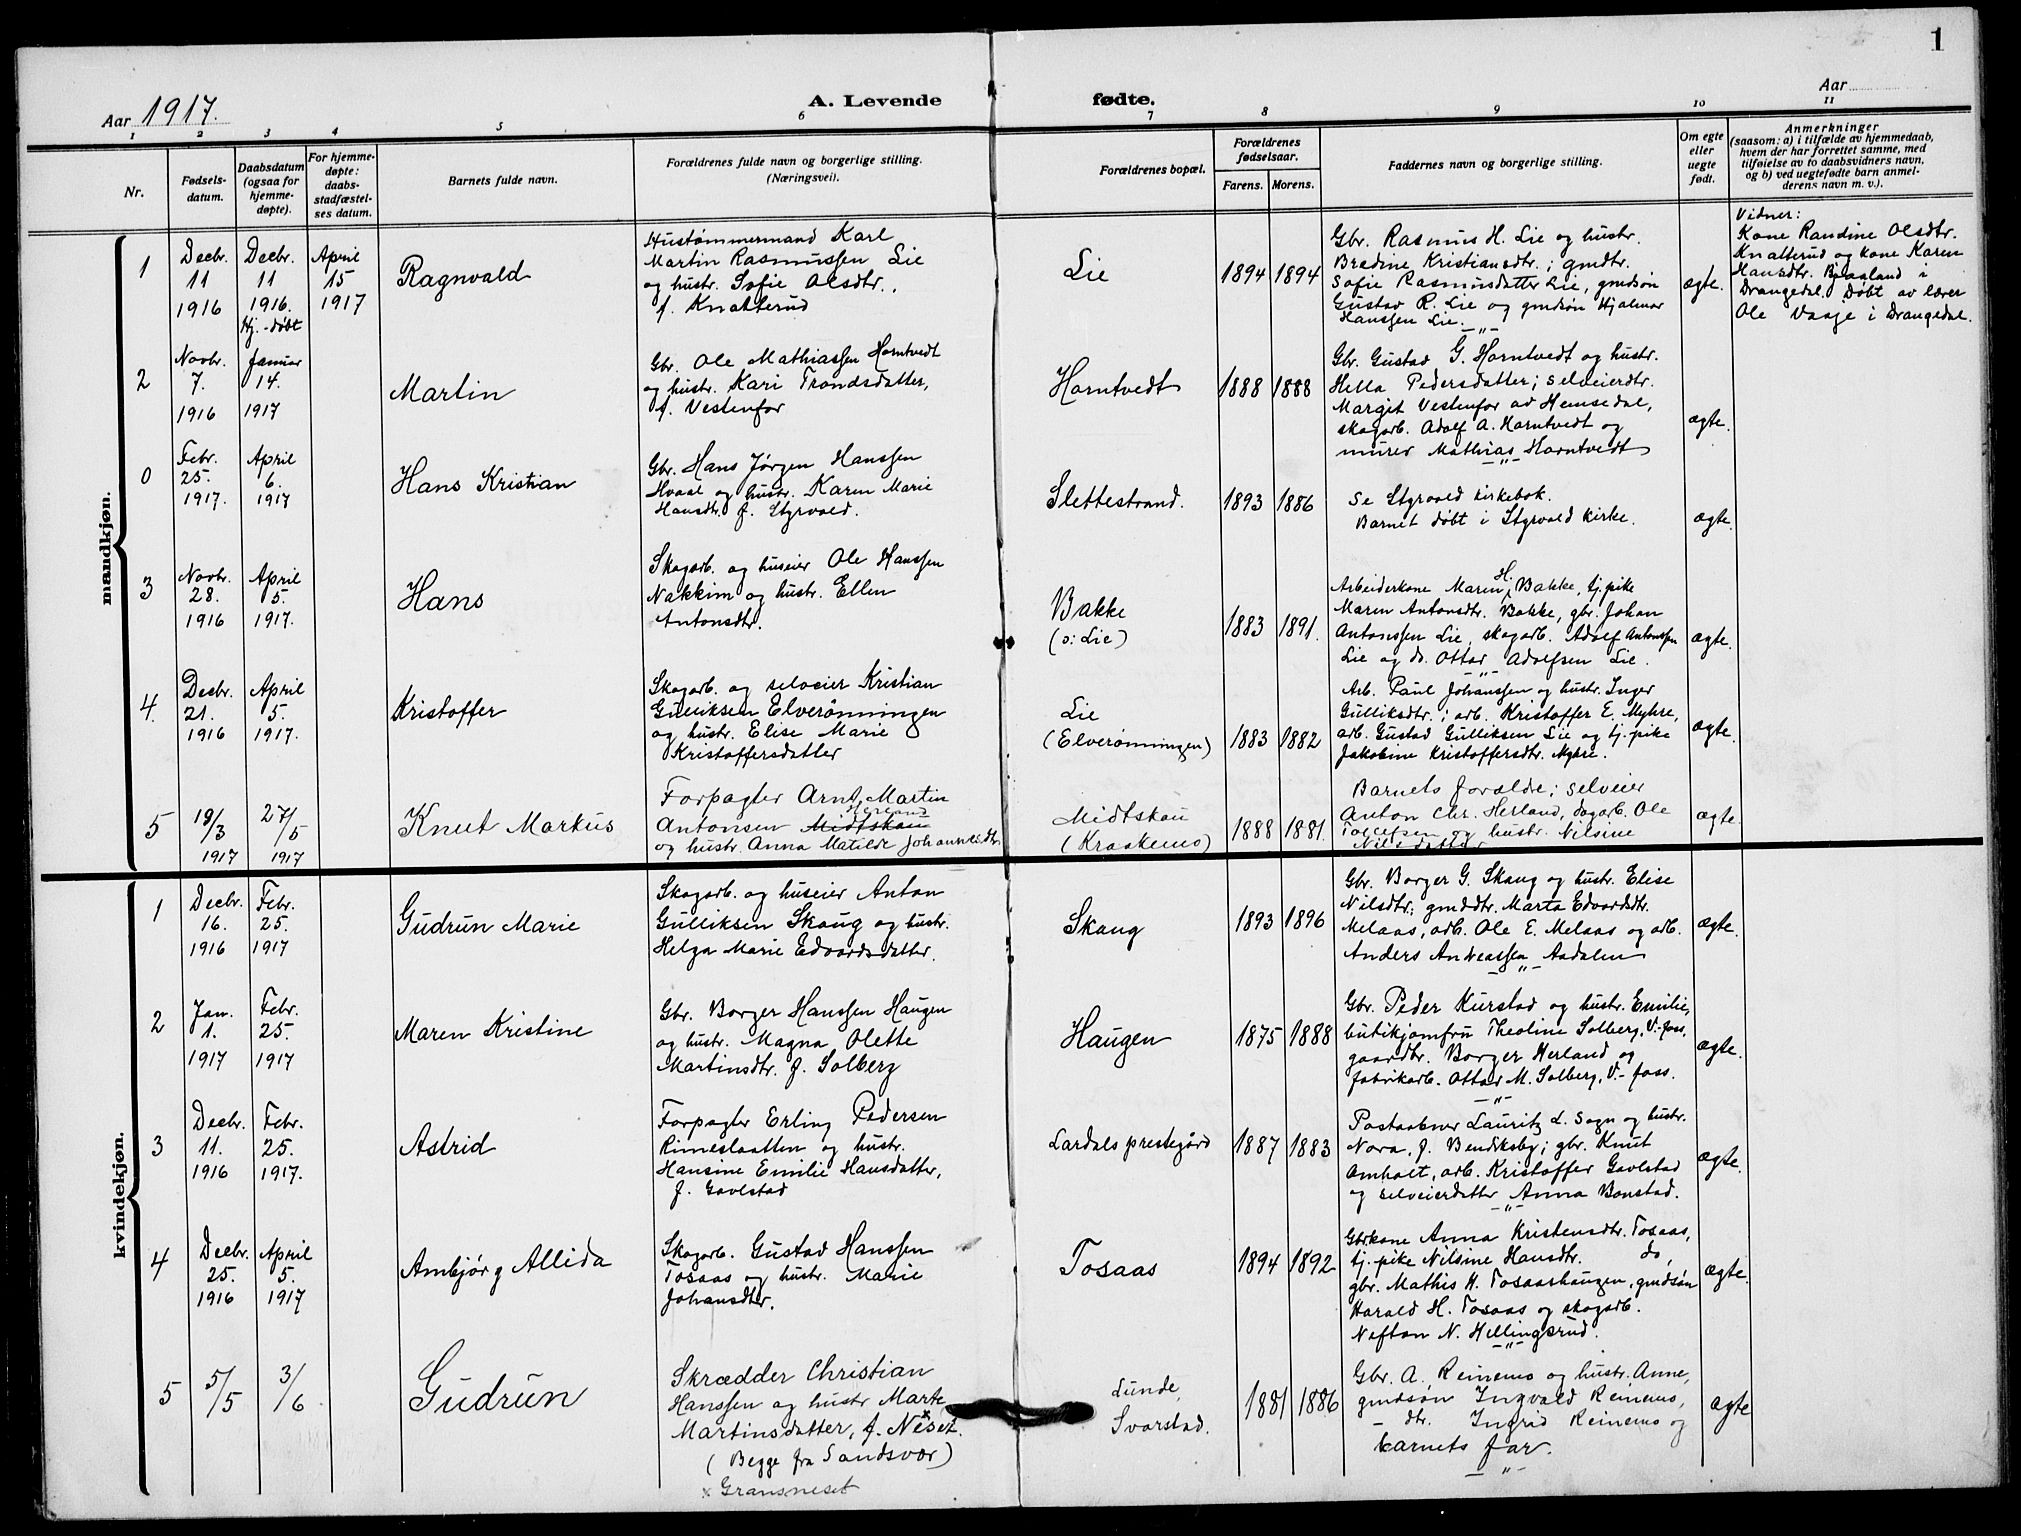 1
Aar 1917.
A. Levende fødte.
Aar
1 2 3 4 5 6 7 8 9 10 11
Nr.
Fødsels-
datum.
Daabsdatum
(ogsaa for
hjemme-
døpte).
For hjemme-
døpte:
daabs-
stadfæstel-
ses datum.
Barnets fulde navn.
Forældrenes fulde navn og borgerlige stilling.
(Næringsvei).
Forældrenes bopæl.
Forældrenes
fødselsaar.
Farens. Morens.
Faddernes navn og borgerlige stilling.
Om egte
eller
uegte
født.
Anmerkninger
(saasom: a) i tilfælde av hjemmedaab,
hvem der har forrettet samme, med
tilføielse av to daabsvidners navn,
og b) ved uegtefødte barn anmel-
derens navn m. v.).
mandkjøn.
1
Decbr.
11
1916
Decbr.
11
1916.
Hj.-døbt
April
15
1917
Ragnvald
Hustømmermand Karl
Martin Rasmussen Lie
og hustr. Sofie Olsdtr.,
f. Knatterud
Lie
1894 1894
Gbr. Rasmus H. Lie og hustr.
Bredine Kristiansdtr.; gmdtr.
Sofie Rasmusdatter Lie, gmdsøn
Gustav R. Lie og gmdsøn Hjalmar
Hanssen Lie.
ægte.
Vidner:
Kone Randine Olsdtr.
Knatterud og kone Karen
Hansdtr. Bjaaland i
Drangedal. Døbt av lærer
Ole Vaage i Drangedal.
2
Novbr.
7.
1916
Januar
14.
1917
Martin
Gbr. Ole Mathiassen Horntvedt
og hustr. Kari Trondsdatter,
f. Vestenfor
Horntvedt
1888 1888
Gbr. Gustav G. Horntvedt og hustr.
Hella Pedersdatter; selveierdtr.
Margit Vestenfor av Hemsedal,
skogarb. Adolf A. Horntvedt og
murer Mathias Horntvedt
ægte.
0
Febr.
25.
1917.
April
6.
1917
Hans Kristian
Gbr. Hans Jørgen Hanssen
Hvaal og hustr. Karen Marie
Hansdtr. f. Styrvold.
Slettestrand.
1893 1886
Se Styrvold kirkebok.
Barnet døbt i Styrvold kirke.
ægte.
3
Novbr.
28.
1916
April
5.
1917.
Hans
Skogarb. og huseier Ole Hanssen
Nakkim og hustr. Ellen
Antonsdtr.
Bakke
(o: Lie)
1883 1891.
Arbeiderkone Maren H. Bakke, tj. pike
Maren Antonsdtr. Bakke, gbr. Johan
Antonssen Lie, skogarb. Adolf Antonssen
Lie og do. Ottar Adolfsen Lie.
ægte.
4.
Decbr.
21.
1916
April
5.
1917.
Kristoffer
Skogarb. og selveier Kristian
Gulliksen Elverønningen
og hustr. Elise Marie
Kristoffersdatter
Lie
(Elverønningen)
1883 1882
Arb. Paul Johanssen og hustr. Inger
Gulliksdtr.; arb. Kristoffer E. Myhre,
arb. Gustav Gulliksen Lie og tj. pike
Jakobine Kristoffersdtr. Myhre.
ægte.
5
19/3
1917
27/5
1917
Knut Markus
Forpagter Arnt Martin
Antonsen Midtskau
og hustr. Anna Matilde Johannesdtr
Midtskau
(Kraakemo)
1888 1881.
Barnets forældre; selveier
Anton Chr. Herland, dagarb. Ole
Tollefsen og hustr. Nilsine
Nilsdatter
ægte.
kvindekjøn.
1
Decbr.
16.
1916
Febr.
25.
1917
Gudrun Marie
Skogarb. og huseier Anton
Gulliksen Skaug og hustr.
Helga Marie Edvardsdatter.
Skaug
1893 1896
Gbr. Borger G. Skaug og hustr. Elise
Nilsdtr; gmddtr. Marta Edvardsdtr.
Melaas, arb. Ole E. Melaas og arb.
Anders Andreassen Aadalen
ægte.
2
Jan.
1.
1917
Febr.
25.
1917
Maren Kristine
Gbr. Borger Hanssen Haugen
og hustr. Magna Olette
Martinsdtr. f. Solberg
Haugen
1875 1888
Gbr. Peder Kurstad og hustr. Emilie,
butikjomfru Theoline Solberg, V.-foss,
gaardbr. Borger Herland og
fabrikarb. Ottar M. Solberg, V.-foss.
ægte.
3
Decbr.
11.
1916
Febr.
25.
1917.
Astrid
Forpagter Erling Pedersen
Rimeslaatten og hustr.
Hansine Emilie Hansdatter,
f. Gavlstad
Lardals prestegård
1887 1883
Postaabner Lauritz L. Sogn og hustr.
Nora, f. Bendiksby; gbr. Knut
Amholt, arb. Kristoffer Gavlstad
og selveierdatter Anna Bonstad.
ægte.
4
Decbr.
25.
1916
April
5.
1917
Ambjørg Allida
Skogarb. Gustav Hanssen
Tosaas og hustr. Marie
Johansdtr.
Tosaas
1894 1892
Gbrkone Anna Kristensdtr. Tosaas,
tj. pike Nilsine Hansdtr. do,
gbr. Mathis H. Tosaashaugen, gmdsøn
Harald H. Tosaas og skogarb.
Neftan N. Hellingsrud.
ægte.
5
5/5
3/6
Gudrun
Skrædder Christian
Hanssen og hustr Marte
Martinsdatter, f. Neset.
(Begge fra Sandsvær)
x Gransneset
Lunde,
Svarstad.
1881 1886
Gbr. A. Reinemo og hustr. Anne,
gmdsøn Ingvald Reinemo,
— dtr. Ingrid Reinemo og
barnets far.
ægte